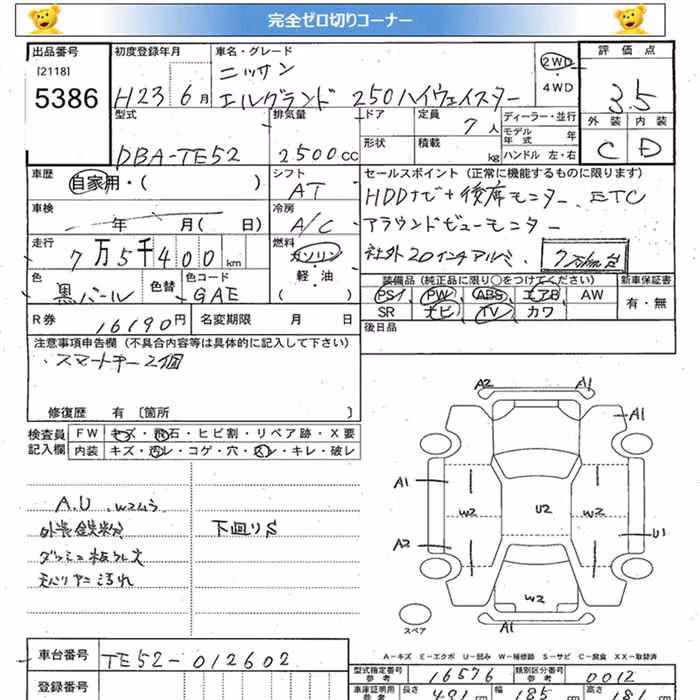 完全ゼロ切りコーナー
出品番号 初度登録年月 車名・グレード 評価点
[2118] ニッサン 2WD
5386 H23 6月 エルグランド 250ハイウェイスター 4WD 3.5
型式 排気量 ドア 定員 ディーラー・並行 外装 内装
7人 モデル年式 年
DBA-TE52 2500cc 形状 積載 kg ハンドル 左・右 C D
車歴 シフト セールスポイント(正常に機能するものに限ります)
自家用・( ) AT HDDナビ+後席モニター、ETC
車検 冷房 アラウンドビューモニター
年 月( 日) A/C
走行 燃料 社外20インチアルミ
7万5千400km ガソリン
色 色替 色コード 軽・油 装備品(純正品に限り○をつけてください) 新車保証書
黒パール GAE ( ) PS PW ABS エアB AW 有・無
R券 16190円 名変期限 月 日 SR ナビ TV カワ
注意事項申告欄(不具合内容等は具体的に記入して下さい) 後日品
・スマートキー2個
修復歴 有[箇所 ]
検査員 FW キズ・飛石・ヒビ割・リペア跡・X要
記入欄 内装 キズ・汚レ・コゲ・穴・スレ・キレ・破レ
A.U. W2ムラ
外装鉄粉 下廻りS
天張ヤニ汚れ
A2 A1
A1
A1
W2 U2 W2
A2 U1
W2
スペア A1
A-キズ E-エクボ U-凹み W-補修跡 S-サビ C-腐食 XX-取替済
車台番号 TE52-012602
型式指定番号 参考 16576 類別区分番号 参考 0012
登録番号 車庫証明用 参考 長さ 491cm 幅 185cm 高さ 181cm